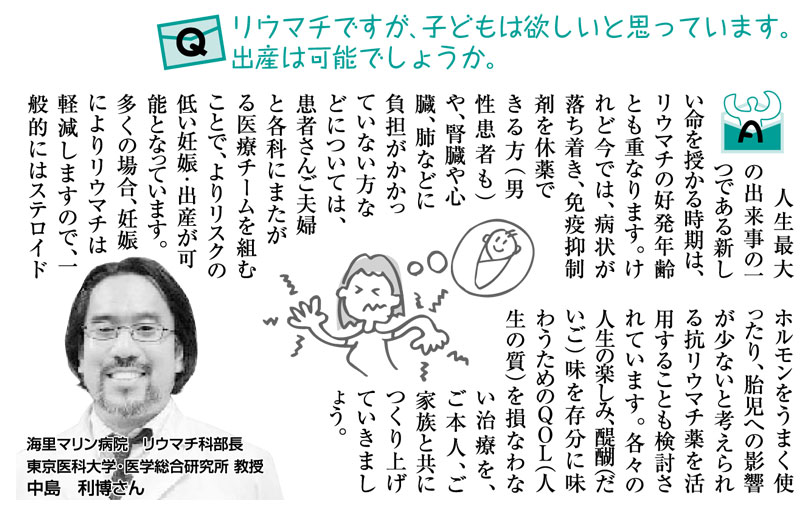 Q
リウマチですが、子どもは欲しいと思っています。
出産は可能でしょうか。
A
人生最大
の出来事の一
つである新し
い命を授かる時期は、
リウマチの好発年齢
とも重なります。け
れど今では、病状が
落ち着き、免疫抑制
剤を休薬で
きる方（男
性患者も）
や、腎臓や心
臓、肺などに
負担がかかっ
ていない方な
どについては、
患者さんご夫婦
と各科にまたが
る医療チームを組む
ことで、よりリスクの
低い妊娠・出産が可
能となっています。
多くの場合、妊娠
によりリウマチは
軽減しますので、一
般的にはステロイド
ホルモンをうまく使
ったり、胎児への影響
が少ないと考えられ
る抗リウマチ薬を活
用することも検討さ
れています。各々の
人生の楽しみ、醍醐（だ
いご）味を存分に味
わうためのQOL（人
生の質）を損なわな
い治療を、
ご本人、ご
家族と共に
つくり上げ
ていきまし
ょう。
海里マリン病院 リウマチ科部長
東京医科大学・医学総合研究所 教授
中島 利博さん